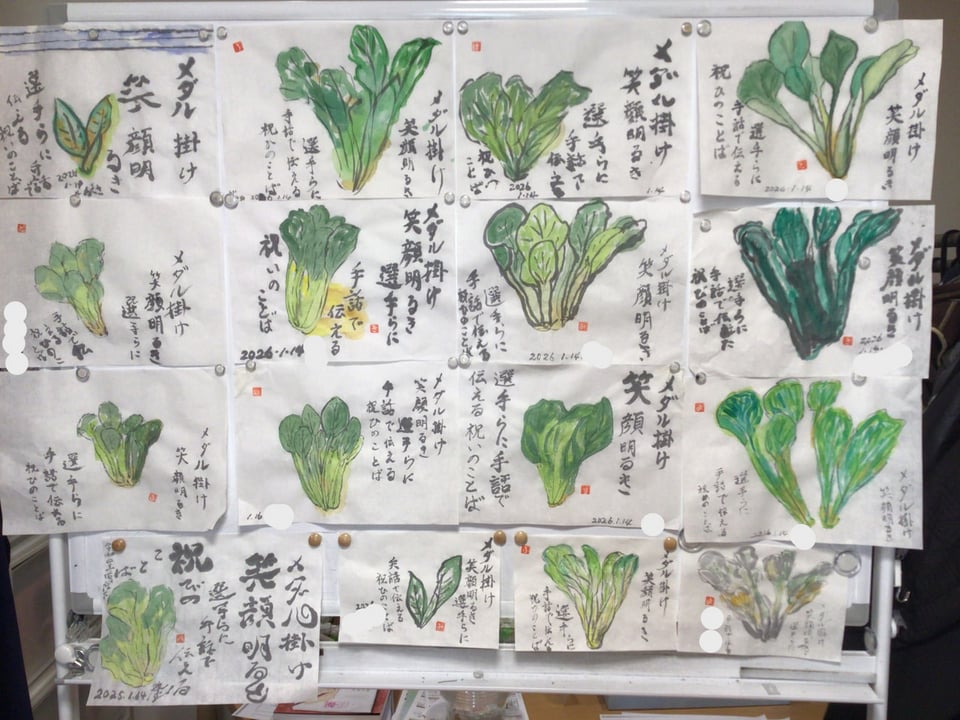 メダル掛け
笑顔明るき
選手らに手話
伝える
祝いのことば
2026
1.14
メダル掛け
笑顔明るき
選手らに
手話で伝える
祝ひのことば
メダル掛け
笑顔明るき
選手らに
手話で
伝える
祝ひの
ことば
2026
1.14
1.14
メダル掛け
笑顔明るき
選手らに
手話で伝える
祝ひのことば
2026.1.14
メダル掛け
笑顔明るき
選手らに
手話で
メダル掛け
笑顔明るき
選手らに
手話で
伝える
祝いの
ことば
2026.1.14
メダル掛け
笑顔明るき
選手らに
手話で伝える
2026.1.14.
メダル掛け
笑顔明るき
選手らに
手話で伝えた
祝ひのことば
2026
メダル掛け
笑顔明るき
選手らに
手話で伝える
祝ひのことば
メダル掛け
笑顔明るき
選手らに
手話で伝える
祝ひのことば
1.16
メダル掛け
笑顔明るき
選手らに手話で
伝える祝いのことば
2026.1.14
メダル掛け
笑顔明るき
選手らに
手話で伝える
祝いのことば
メダル掛け
笑顔明るき
選手らに
手話で
伝える
祝びの
ことば
2025.1.14
メダル掛け
笑顔明るき
選手らに
手話で伝える
祝ひのことば
メダル掛け
笑顔明るき
選手らに
手話で伝える
祝ひのことば
メダル掛け
笑顔明るき